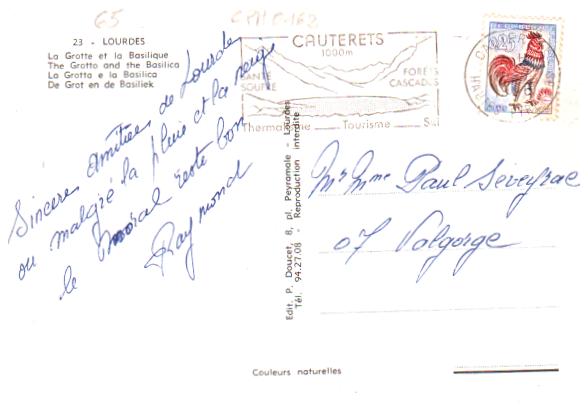 65
23 - LOURDES
La Grotte et la Basilique
The Grotto and the Basilica
La Grotta e la Basilica
De Grot en de Basiliek
Sincères Amitiés de Lourdes
ou malgré la pluie et la neige
le Moral reste bon
Raymond
Edit. P. Doucet, 8, pl. Peyramale - Lourdes
Tél. 94.27.08 - Reproduction interdite
CAUTERETS
1000m
SANTÉ
SOUFRE
FORETS
CASCADES
Thermalisme Tourisme Ski
0,25
Mr Mme Paul Séveyrac
07 Valgorge
Couleurs naturelles